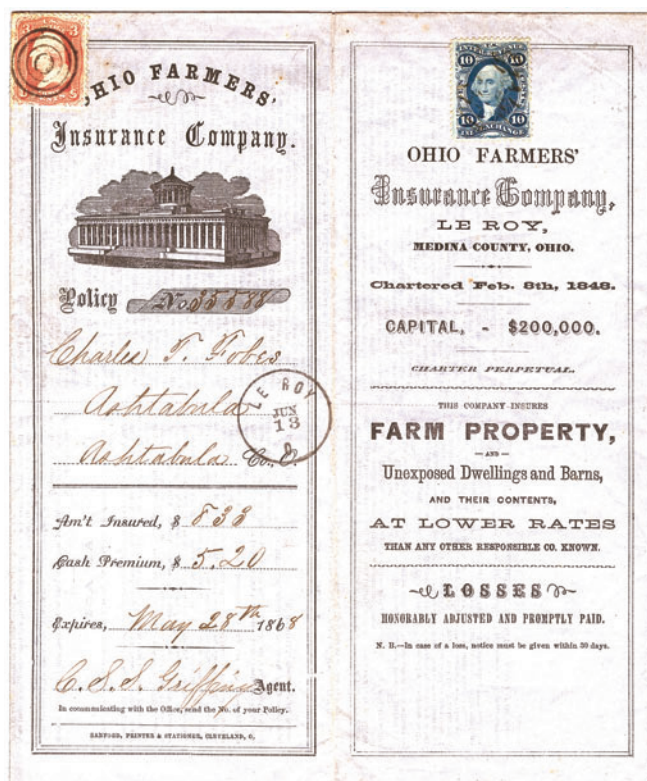 3 3
CENTS
OHIO FARMERS'
Insurance Company.
Policy No 35588
Charles T. Fobes
Ashtabula
Ashtabula Co., O.
LE ROY
JUN
13
O
Am't Insured, $ 833
Cash Premium, $ 5.20
Expires, May 28th 1868
C. S. S. Griffing Agent.
In communicating with the Office, send the No. of your Policy.
SANFORD, PRINTER & STATIONER, CLEVELAND, O.
INTER. REVENUE
10 10
10 10
EXCHANGE
OHIO FARMERS'
Insurance Company,
LE ROY,
MEDINA COUNTY, OHIO.
Chartered Feb. 8th, 1848.
CAPITAL, - $200,000.
CHARTER PERPETUAL.
THIS COMPANY INSURES
FARM PROPERTY,
— AND —
Unexposed Dwellings and Barns,
AND THEIR CONTENTS,
AT LOWER RATES
THAN ANY OTHER RESPONSIBLE CO. KNOWN.
LOSSES
HONORABLY ADJUSTED AND PROMPTLY PAID.
N. B.—In case of a loss, notice must be given within 30 days.